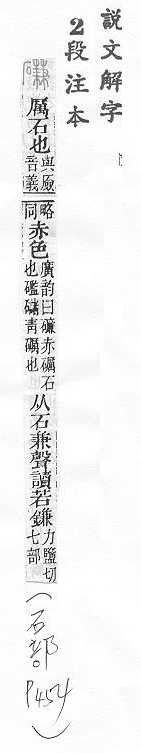 説文解字
2段注本
磏 厲石也與厲音義略同赤色廣韵曰磏赤礪石也礛䃴青礪也从石兼聲讀若鎌力鹽切七部(石部 P454)